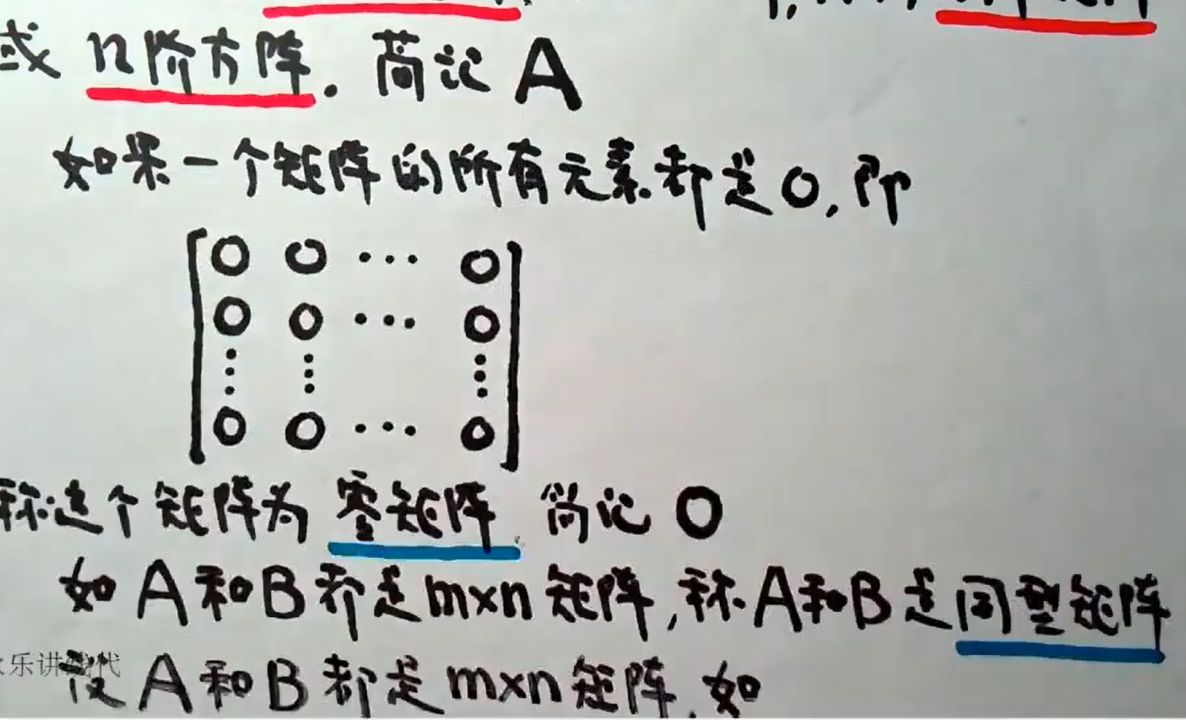 或 n阶方阵. 简记 A
如果一个矩阵的所有元素都是0, 即
0 0 ··· 0
0 0 ··· 0
⋮ ⋮ ⋮
0 0 ··· 0
称这个矩阵为 零矩阵. 简记 O
如 A和B都是m×n矩阵,称A和B是同型矩阵
乐讲线代
设A和B都是m×n矩阵, 如